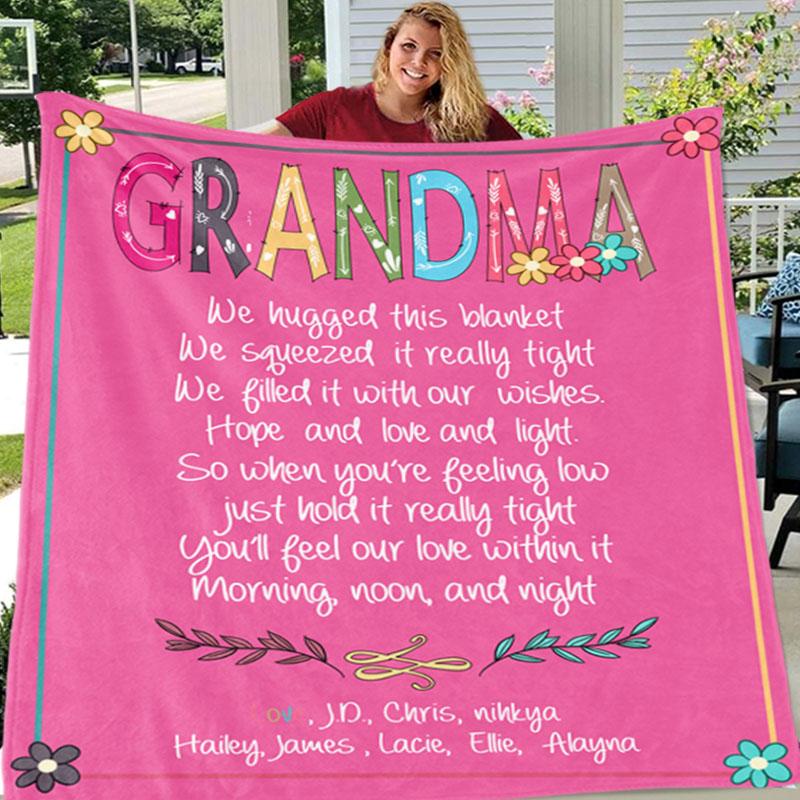 GRANDMA
We hugged this blanket
We squeezed it really tight
We filled it with our wishes.
Hope and love and light.
So when you're feeling low
just hold it really tight
You'll feel our love within it
Morning, noon, and night
, J.D., Chris, nihkya
Hailey, James , Lacie, Ellie, Alayna